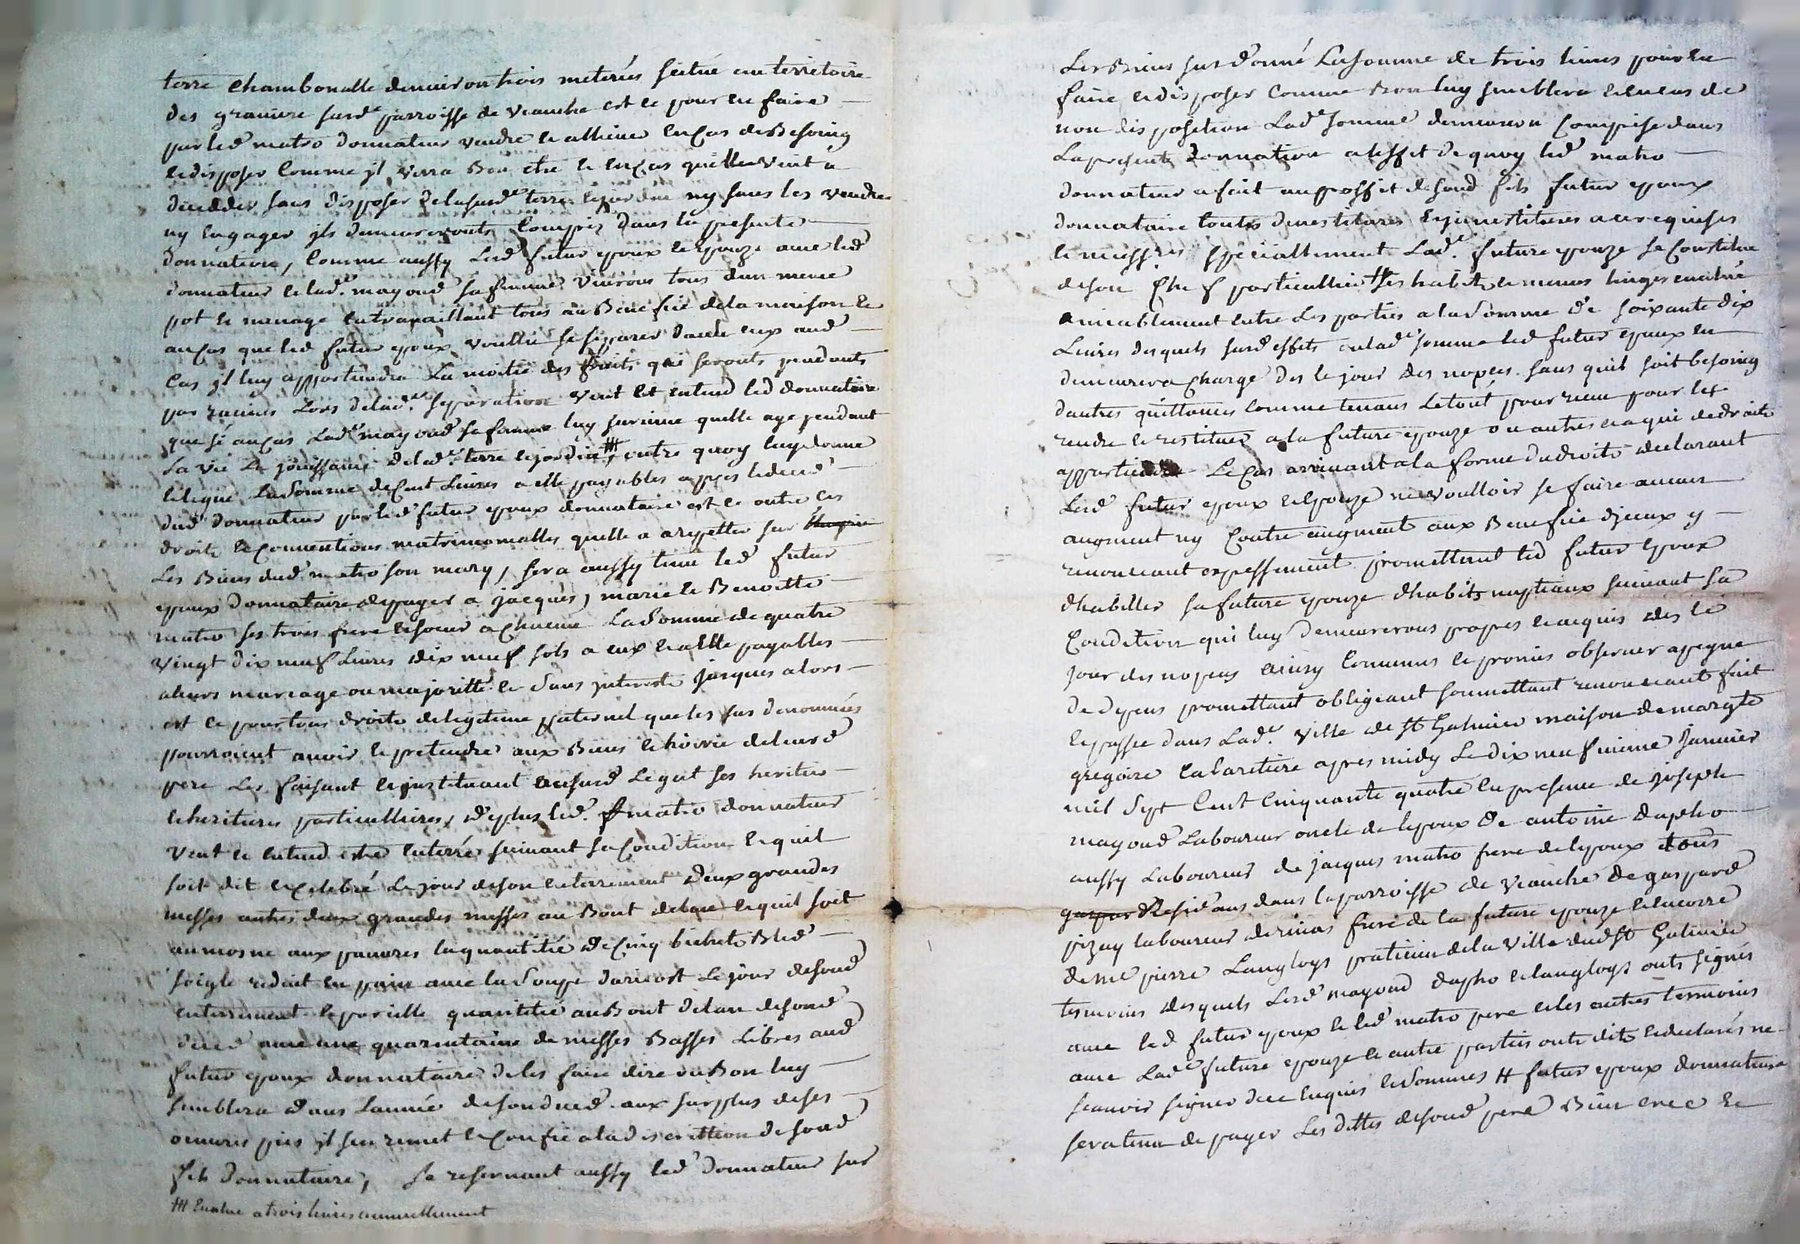 terre chambonalle denviron trois meterées scitué au territoire
des graviere susd.e parroisse de veauche est ce pour en faire
par led matro donnateur vendre et alliéner en cas de Besoing
et disposer comme jl verra Bon etre et en cas quelle vint a
décedder sans disposer de la susd.e terre et jardin ny sans les vendre
ny engager jls demeureronts compris dans la presente
donnation, comme aussy led futur epoux et epouze avec led
donnateur et lad.e mayoud sa femme vivrons tous d'un meme
pot et menage en travaillant tous au Benefice de la maison et
au cas que led futur epoux voullut se separer d'avec eux aud
cas jl luy appartiendra la moitié des fruits qui seronts pendants
par racines Lors de lad.e separation veut et entend led donnateur
que sé au cas Lad.e mayoud sa femme luy survive quelle aye pendant
sa vie la jouissance de lad.e terre et jardin # outre quoy luy donne
et legue la somme de cent Livres a elle payables appres le deced
dud donnateur par led futur epoux donnataire est ce outre ces
droits et conventions matrimonialles quelle a arepetter sur
Les Biens dud matro son mary, sera aussy tenu led futur
epoux donnataire de payer a jacques, marie et Benoitte
matro ses trois frere et soeur a chacune La somme de quatre
vingt dix neuf Livres dix neuf sols a eux et a elle payables
a leurs mariage ou majoritté et sans jnterets jusques alors
est ce pour tous droits de legitime paternel que les sus denommées
pourroient avoir et pretendre aux Biens et hoirie de leurd
pere Les faisant et jnstituant ausurd legat ses heritiers
et heritieres particulliers, de plus led. matro donnateur
veut et entend estre enterré suivant sa condition et quil
soit dit et celebré le jour de son enterrement deux grandes
messes autres deux grandes messes au Bout de lan et quil soit
aumosne aux pauvres la quantitée de cinq bichets Bled
soigle reduit en pain avec la soupe d'aricost le jour de soud
enterrement et pareille quantitée au Bout de lan de soud
deced avec une quarantaine de messes Basses Libres aud
futur epoux donnataire de les faire dire ou Bon luy
semblera dans lannée de son deced. aux surplus de ses
oeuvres pies jl sen remet et confie a la discrettion de soud
fils donnataire, se reservant aussy led donnateur sur
# Evalue a trois livres annuellement
Les Biens sus donné La somme de trois livres pour en
faire et disposer comme Bon luy semblera et en cas de
non disposition Lad.e somme demeurera comprise dans
La presente donnation a leffet de quoy led matro
donnateur a fait au proffit de soud fils futur epoux
donnataire toutes devestitures et jnvestitures a ce requises
et necessres specialltement Lad.e future epouze se constitue
de son chef particullier ses habits et menus linges evalué
amicablement entre les parties a la somme de soixante dix
Livres desquels susd effets ou lad.e somme led futur epoux en
demeurera chargé des le jour des nopces sans quil soit besoing
dautres quittances comme tenant le tout pour receu pour les
rendre et restituer a la future epouze ou autres a qui de droits
appartiendra Le cas arrivant a la forme du droits declarant
Lesd futur epoux et epouze ne voulloir se faire aucun
augment ny contre augment aux Benefice djceux y
renonceant expressement promettant led futur epoux
dhabiller sa future epouze dhabits nuptiaux suivant sa
condition qui luy demeurerons propres et acquis des le
jour des nopces ainsy convenus et promis observer a peyne
de depens promettant obligeant soumettant renonceant fait
et passé dans Lad.e ville de St Galmier maison de margte
gregoire cabaretiere apres midy Le dix neufvieme Janvier
mil sept cent cinquante quatre en presence de joseph
mayoud Laboureur oncle de lepoux de antoine dapcho
aussy Laboureur de jacques matro frere de lepoux tous
Residans dans la parroisse de veauche de gaspard
pizay laboureur de rivas frere de la future epouze et encorre
de me pierre Langloys praticien de la ville dud St Galmier
tesmoins desquels Lesd mayoud dapcho et langloys onts signés
avec led futur epoux et led matro pere et les autres temoins
avec Lad.e future epouze et autre parties onts dits et declarés ne
scavoir signer de ce enquis et sommés # futur epoux donnataire
sera tenu de payer Les dettes de soud pere Bien avec Le